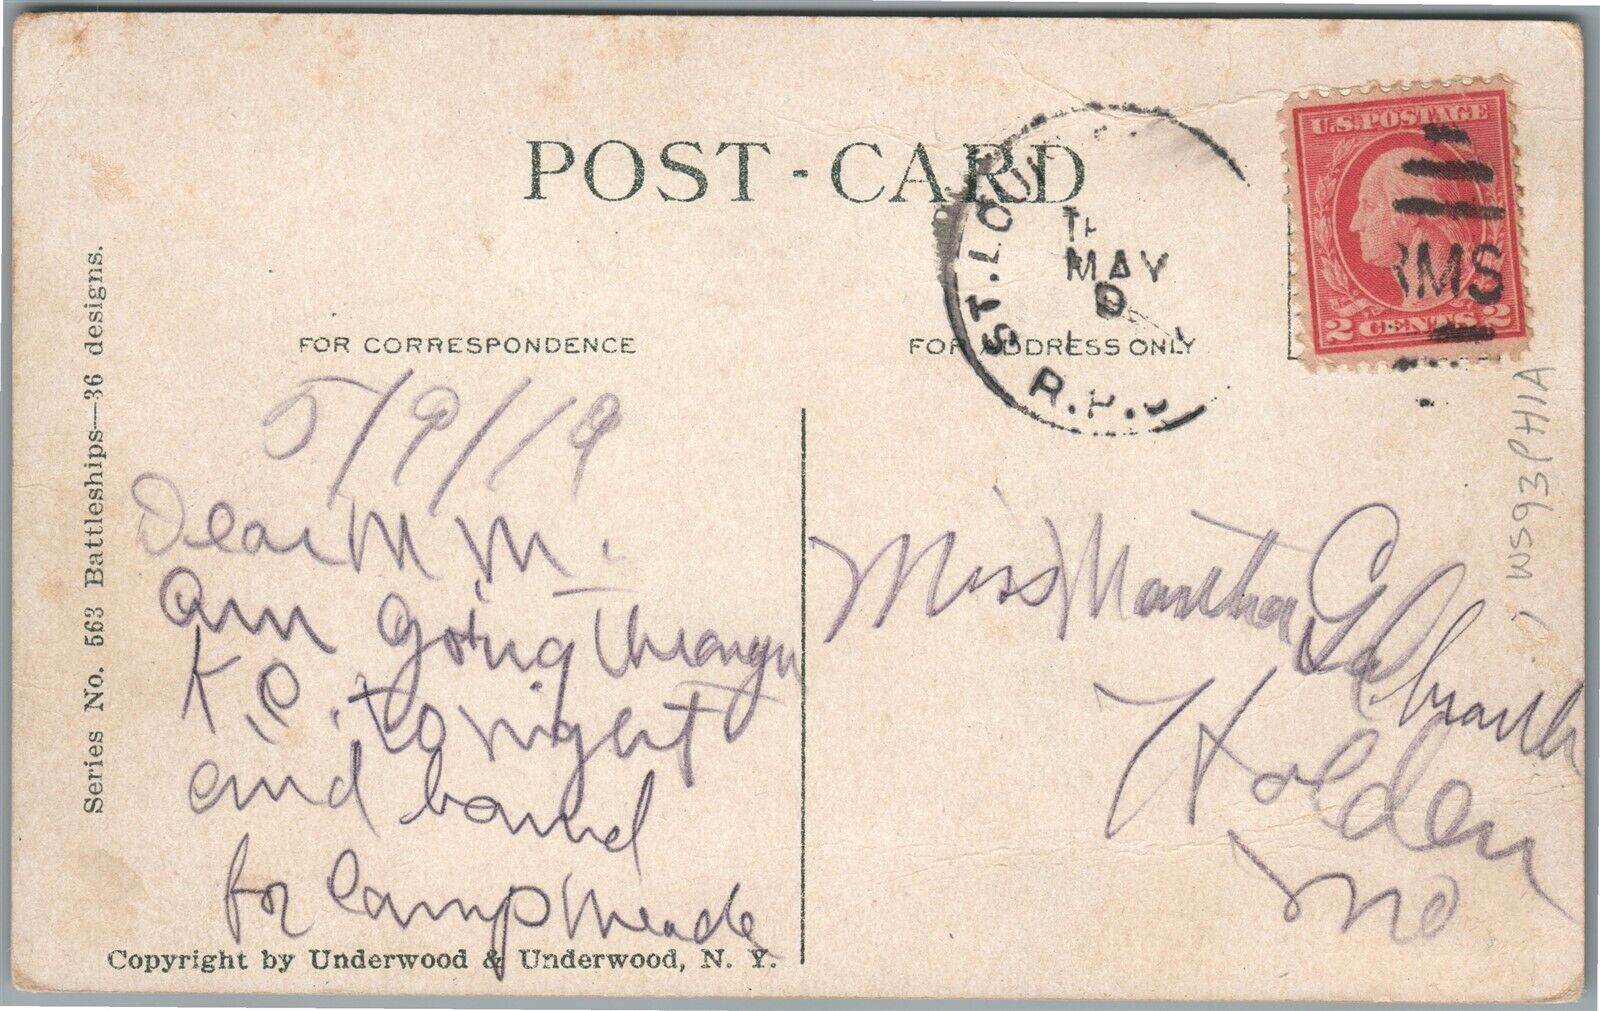 POST-CARD
ST. LOUI
MAY
9
R.P.O
U.S. POSTAGE
2 CENTS 2
RMS
FOR CORRESPONDENCE
FOR ADDRESS ONLY
Series No. 563 Battleships—36 designs.
5/9/19
Dear M M.
Am going through
K.C. tonight
and bound
for Camp Meade
Copyright by Underwood & Underwood, N. Y.
Miss Martha Galbraith
Holden
Mo
WS93PHIA